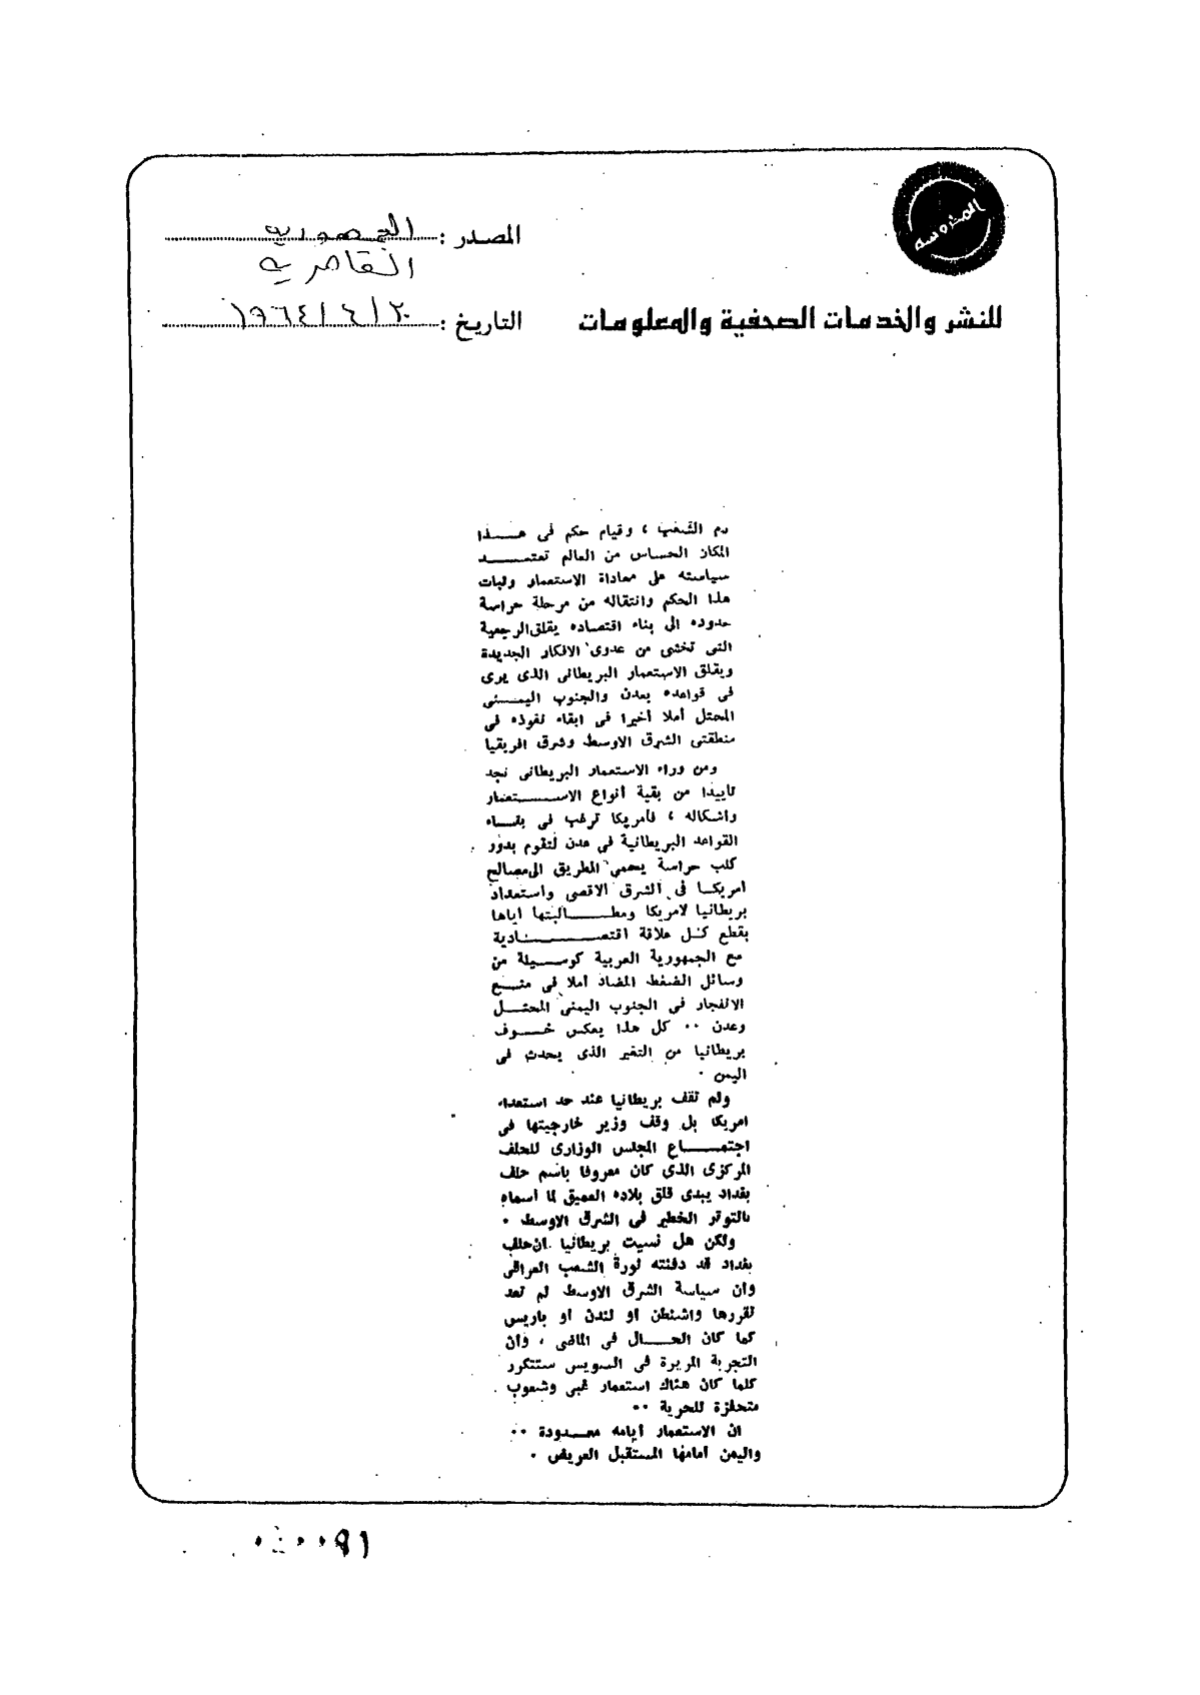 المحروسة
المصدر : الجمهورية
القاهرية
للنشر والخدمات الصحفية والمعلومات
التاريخ : ٢٠/٤/١٩٦٤
دم الشعب ، وقيام حكم فى هـــذا
المكان الحساس من العالم تعتمــــد
سياسته على معاداة الاستعمار وثبات
هذا الحكم وانتقاله من مرحلة حراسة
حدوده الى بناء اقتصاده يقلق الرجعية
التى تخشى من عدوى الافكار الجديدة
ويقلق الاستعمار البريطانى الذى يرى
فى قواعده بعدن والجنوب اليمـــنى
المحتل أملا أخيرا فى ابقاء نفوذه فى
منطقتى الشرق الاوسط وشرق افريقيا
ومن وراء الاستعمار البريطانى نجد
تاييدا من بقية أنواع الاســـتعمار
واشكاله ، فأمريكا ترغب فى بقــاء
القواعد البريطانية فى عدن لتقوم بدور
كلب حراسة يحمى الطريق الى مصالح
امريكــا فى الشرق الاقصى واستعداد
بريطانيا لامريكا ومطـــالبتها اياها
بقطع كـل علاقة اقتصــــادية
مع الجمهورية العربية كوســيلة من
وسائل الضغط المضاد أملا فى منــع
الانفجار فى الجنوب اليمنى المحتــل
وعدن ٠٠ كل هذا يعكس خــوف
بريطانيا من التغير الذى يحدث فى
اليمن ٠
ولم تقف بريطانيا عند حد استعداء
امريكا بل وقف وزير خارجيتها فى
اجتمــاع المجلس الوزارى للحلف
المركزى الذى كان معروفا باسم حلف
بغداد يبدى قلق بلاده العميق لما أسماه
بالتوتر الخطير فى الشرق الاوسط ٠
ولكن هل نسيت بريطانيا ان حلف
بغداد قد دفنته ثورة الشعب العراقى
وان سياسة الشرق الاوسط لم تعد
تقررها واشنطن او لندن او باريس
كما كان الحـــال فى الماضى ، وأن
التجربة المريرة فى السويس ستتكرر
كلما كان هناك استعمار غبى وشعوب
متحفزة للحرية ٠٠
ان الاستعمار أيامه معــدودة ٠٠
واليمن أمامها المستقبل العريض ٠